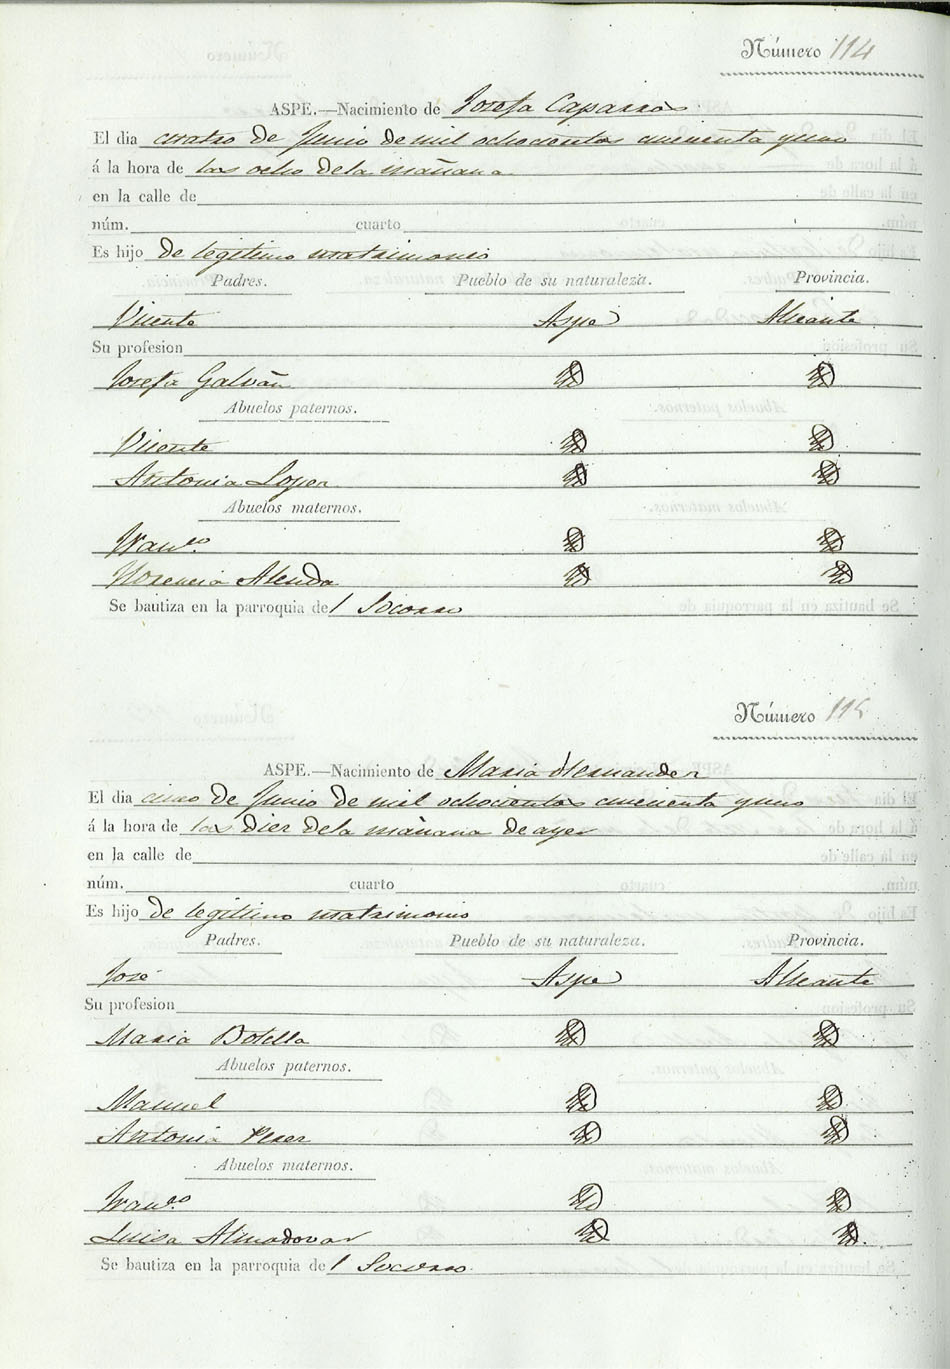 Número 114
ASPE.—Nacimiento de Josefa Caparros
El dia cuatro de Junio de mil ochocientos cincuenta y uno
á la hora de las ocho de la mañana
en la calle de
núm. cuarto
Es hijo de legitimo matrimonio
Padres. Pueblo de su naturaleza. Provincia.
Vicente Aspe Alicante
Su profesion
Josefa Galván Id Id
Abuelos paternos.
Vicente Id Id
Antonia Lopez Id Id
Abuelos maternos.
Franco. Id Id
Florencia Alenda Id Id
Se bautiza en la parroquia del Socorro
Número 115
ASPE.—Nacimiento de Maria Hernandez
El dia cinco de Junio de mil ochocientos cincuenta y uno
á la hora de las diez de la mañana de ayer
en la calle de
núm. cuarto
Es hijo de legitimo matrimonio
Padres. Pueblo de su naturaleza. Provincia.
José Aspe Alicante
Su profesion
Maria Botella Id Id
Abuelos paternos.
Manuel Id Id
Antonia Perez Id Id
Abuelos maternos.
Franco. Id Id
Luisa Almodovar Id Id
Se bautiza en la parroquia del Socorro